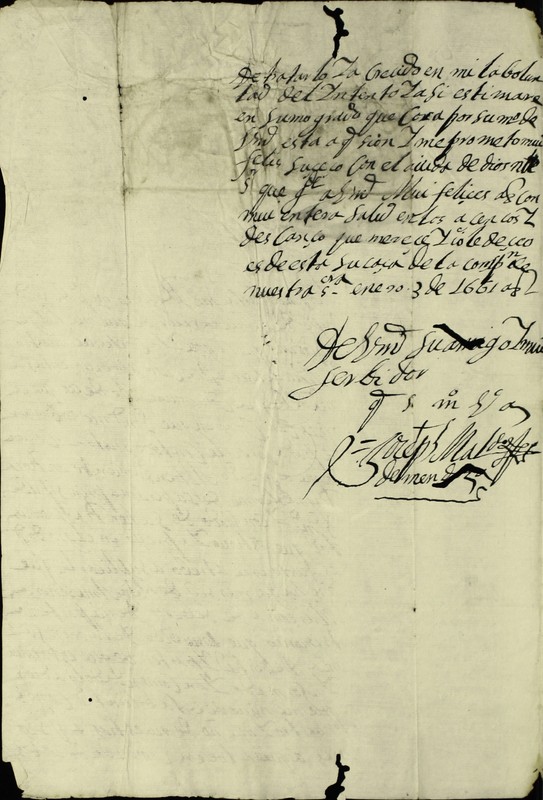 de tratarlo Ya Creido en mi la bolun
tad del Yntento Y asi estimare
en sumo grado que Corra por su mo de
Vmd esta aq sion Y me prometo mui
felis suceco Con el aiuda de dios nro
sr que gde a Vmd Mui felices as Con
mui entera Salud en los acensos Y
descanço que merece Y io le deceo
es de esta su caça de la compa de
nuestra sra enero 3 de 1661 as
De Vmd Su amigo Y mui
serbidor
q s m b
Joseph Maldonado
de mendoza